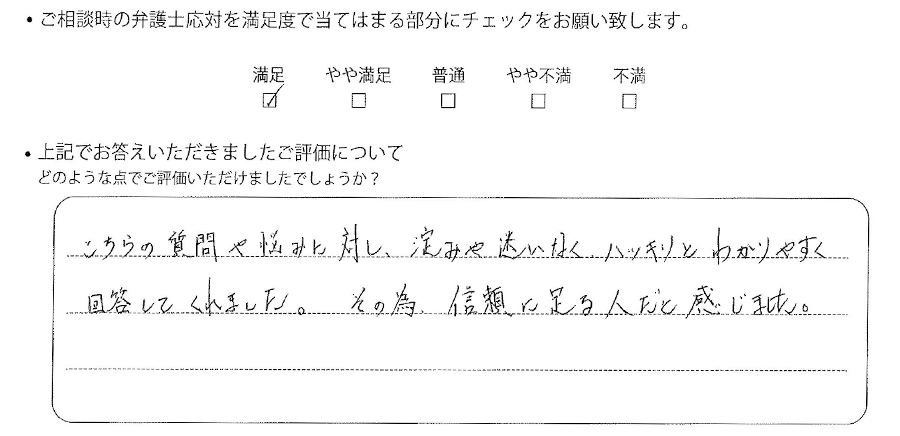 ・ご相談時の弁護士応対を満足度で当てはまる部分にチェックをお願い致します。
満足 やや満足 普通 やや不満 不満
☑ □ □ □ □
・上記でお答えいただきましたご評価について
どのような点でご評価いただけましたでしょうか？
こちらの質問や悩みに対し、淀みや迷いなく、ハッキリとわかりやすく
回答してくれました。その為、信頼に足る人だと感じました。